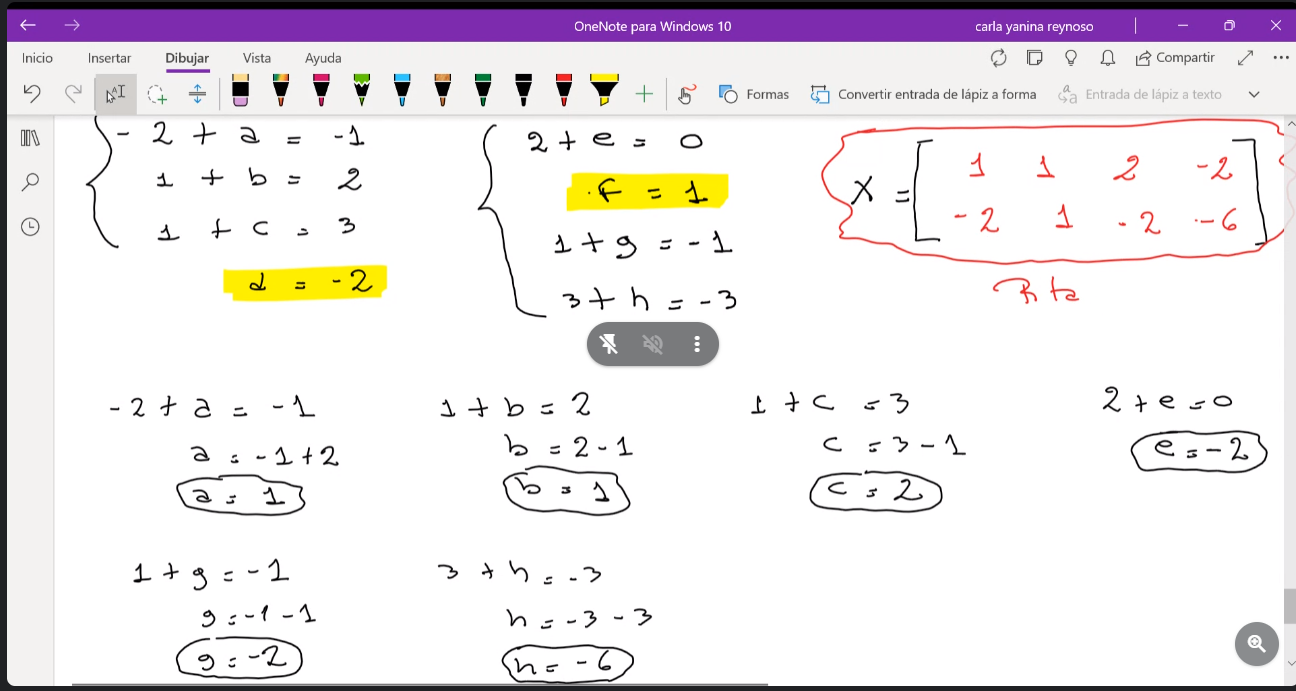 OneNote para Windows 10
carla yanina reynoso
Inicio Insertar Dibujar Vista Ayuda
Compartir
Formas
Convertir entrada de lápiz a forma
Entrada de lápiz a texto
- 2 + a = -1
1 + b = 2
1 + c = 3
d = -2
2 + e = 0
f = 1
1 + g = -1
3 + h = -3
X = [ 1 1 2 -2
-2 1 -2 -6 ]
Rta
-2 + a = -1
a = -1 + 2
a = 1
1 + b = 2
b = 2 - 1
b = 1
1 + c = 3
c = 3 - 1
c = 2
2 + e = 0
e = -2
1 + g = -1
g = -1 - 1
g = -2
3 + h = -3
h = -3 - 3
h = -6